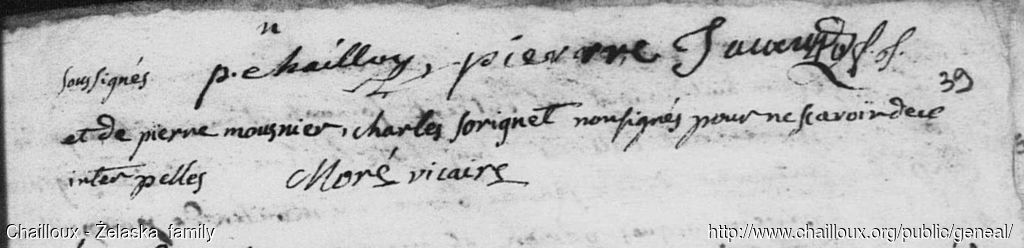 soussignés p. chailloy, pierre
39
et de pierre mousnier, charles sorignet non signés pour ne scavoir de ce
interpelles Moré vicaire
Chailloux - Żelaska family
http://www.chailloux.org/public/geneal/